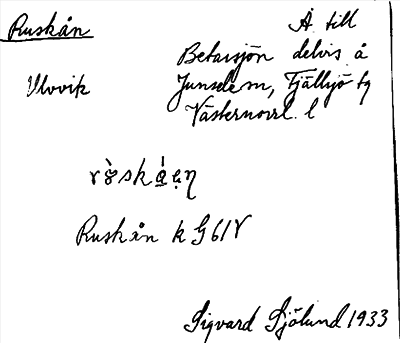 Ruskån
Å till
Betarsjön delvis å
Ulvvik
Junsele sn, Fjällsjö tg
Västernorrl. l
Ruskån k G 61 V
Sigvard Sjölund 1933